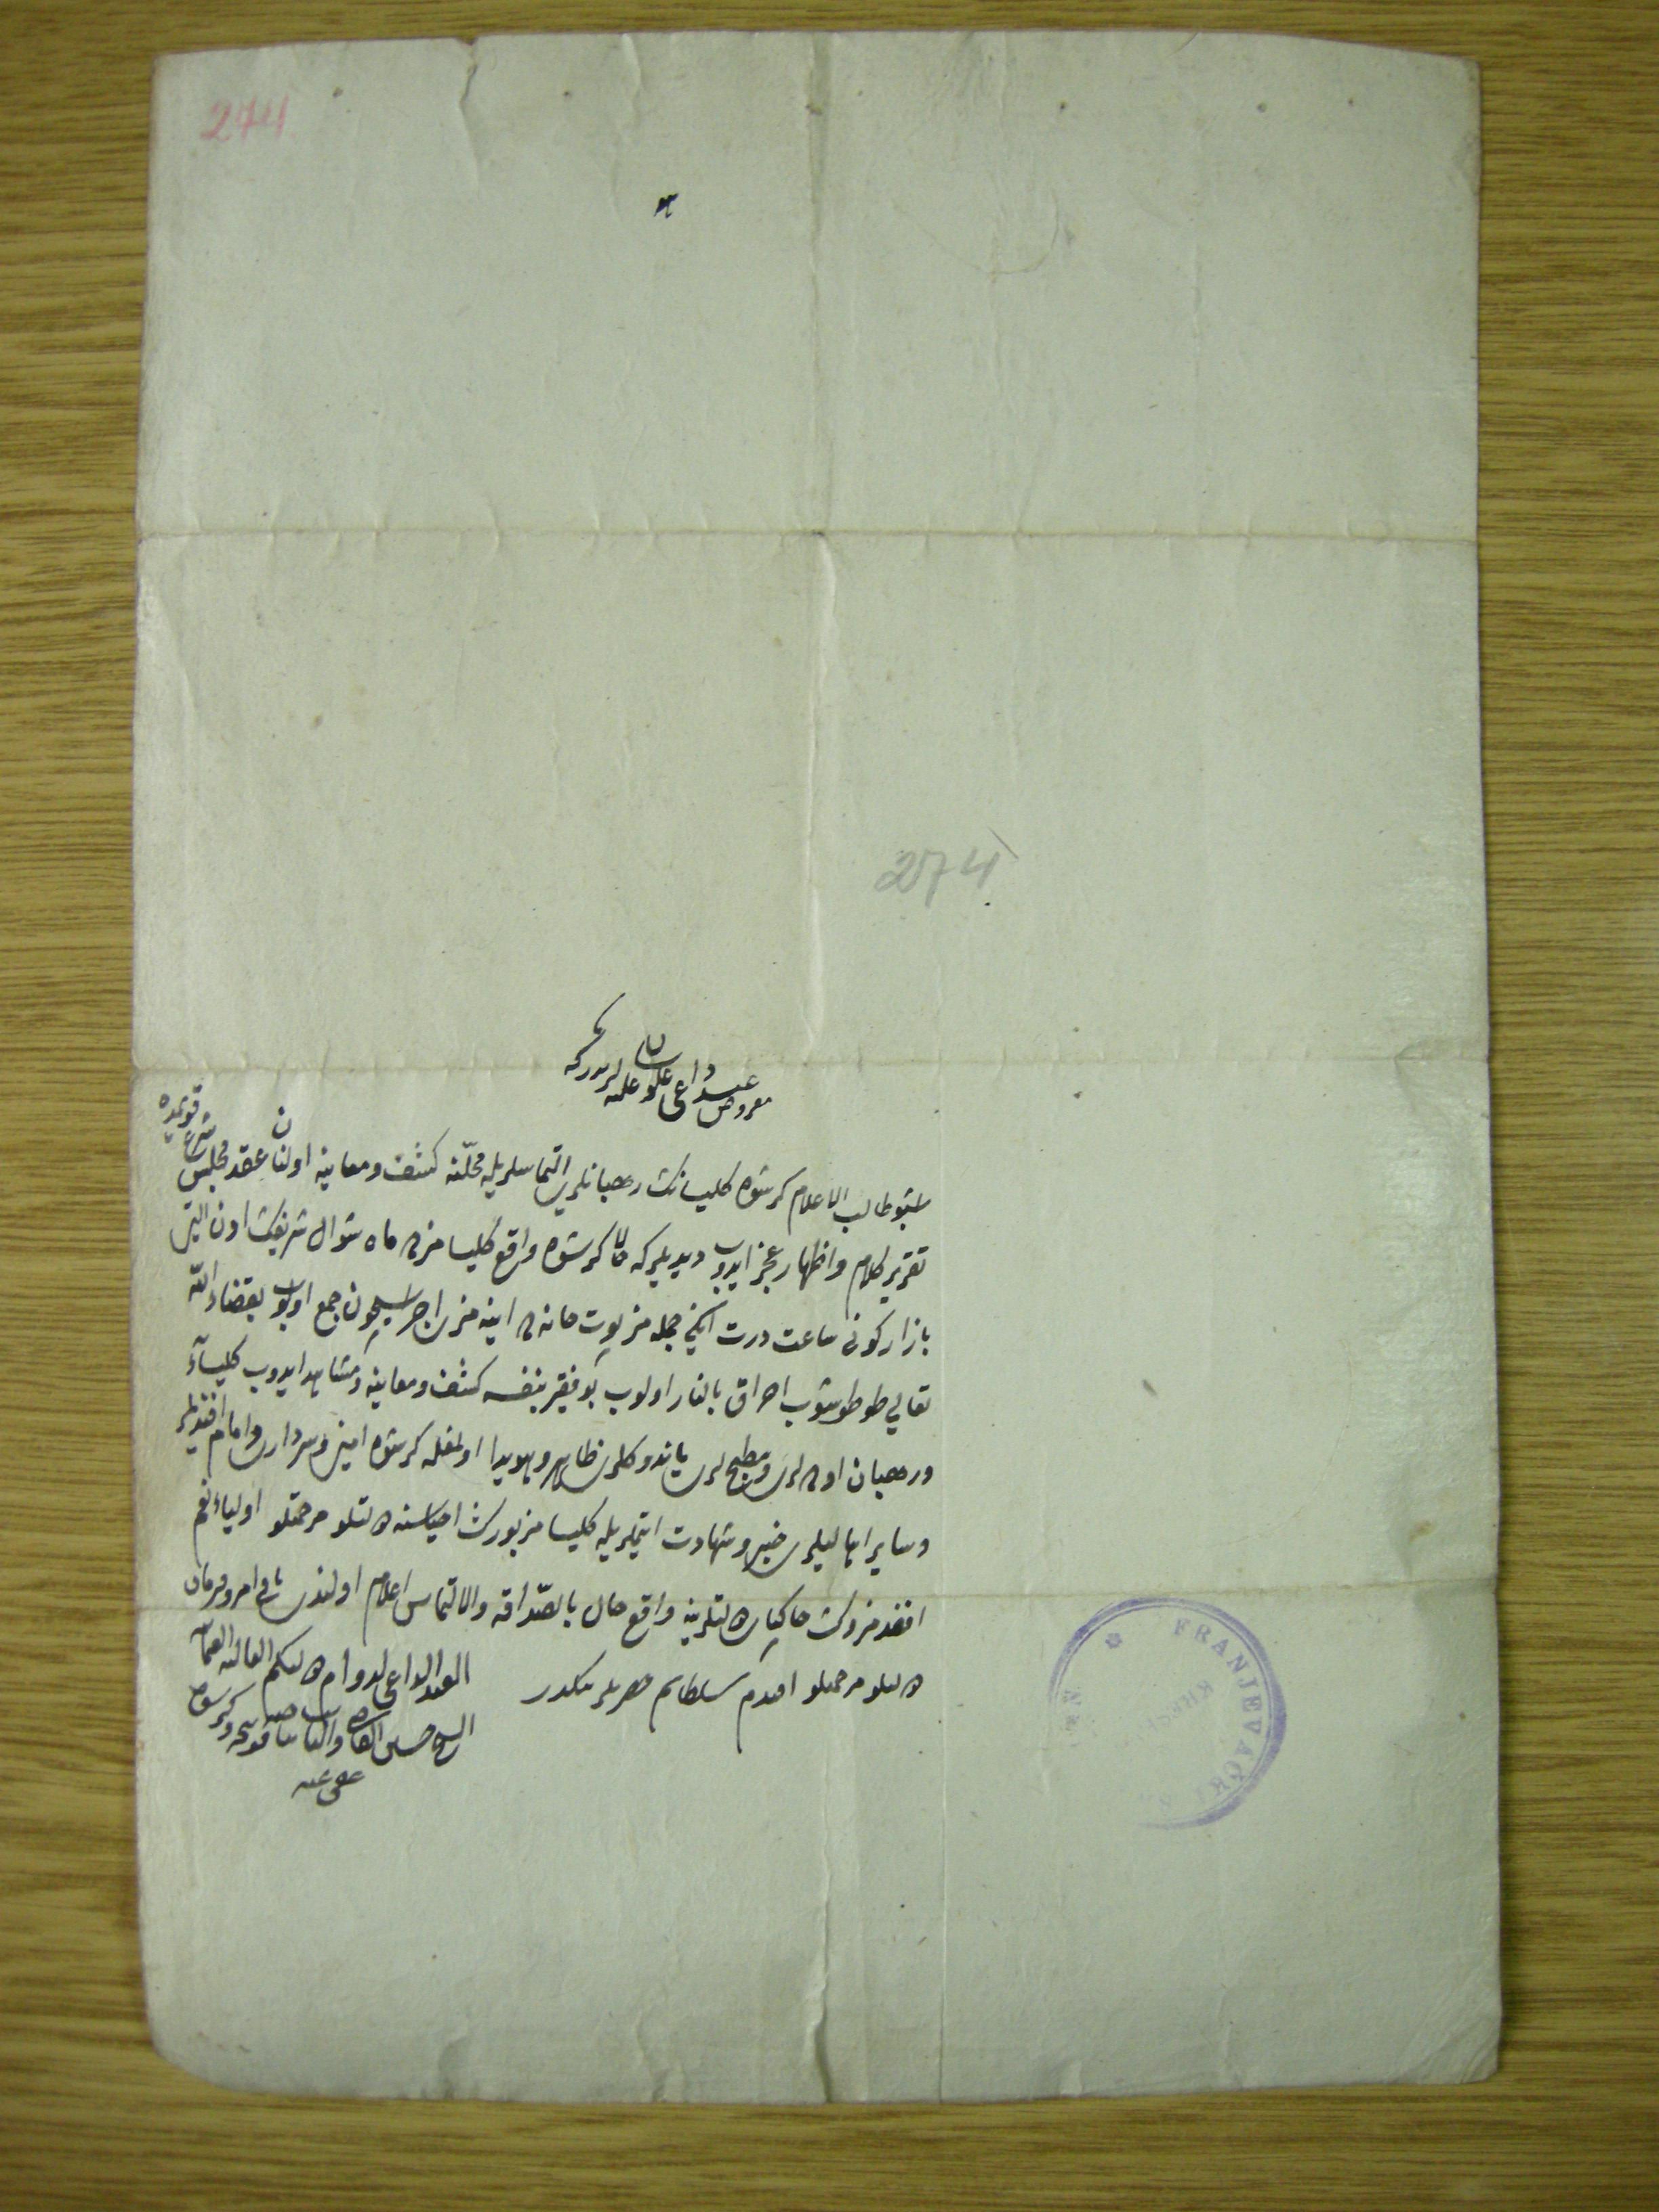 274
274
معروض داعی
اشبو طالب الاعلام کرشوه کلیسانک رهبانلری التماسلریله محلنه کشف و معاینه اولنان عقد مجلس شرع قویمده
تقریر کلام و اظهار عجز ایدوب دیدیلرکه حالا کرشوه واقع کلیسامزده ماه شوال شریفک اون التنجی
بازار کونی ساعت درت ایکن جمله مز بیوت خانه ده اینه مزی اجرا ایچون جمع اولوب بقضاء الله
تعالی طوطوشوب احراق بالنار اولوب بو فقیر بنفسه کشف و معاینه و مشاهد ایدوب کلیساء
و رهبان اوده لری و مطبخلری یاندوکلری ظاهر و هویدا اولمغله کرشوه امینی و سرداری و امام افندیلر
و سایر اهالیلری خبر و شهادت ایتملریله کلیسا مزبورک احیاسنه دولتلو مرحمتلو اولیاء نعم
افندمزک خاکپای دولتلرینه واقع حال بالصداقه و الالتماس اعلام اولندی باقی امر و فرمان
دولتلو مرحمتلو افندم سلطانم حضرتلرینکدر
العبد الداعی لدوام دولتکم العالیه
السید حسین
عفی عنه
FRANJEVAČKI